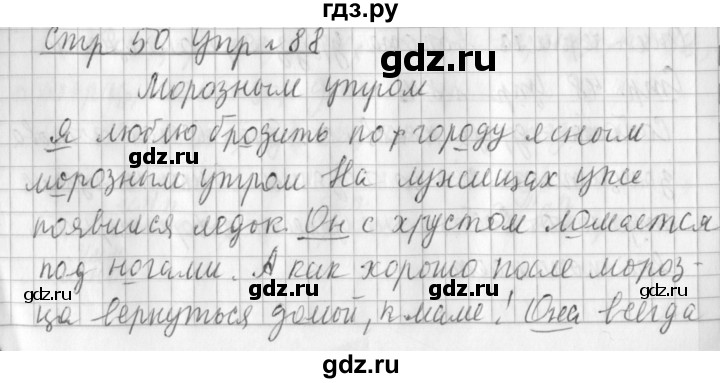 гдз.ру
Стр 50 упр. 88
Морозным утром
Я люблю бродить по городу ясным
морозным утром На лужицах уже
появился ледок. Он с хрустом ломается
под ногами. А как хорошо после мороз-
ца вернуться домой, к маме! Она всегда
gdz.ru
gdz.ru
gdz.ru
gdz.ru
gdz.ru
gdz.ru
gdz.ru
gdz.ru